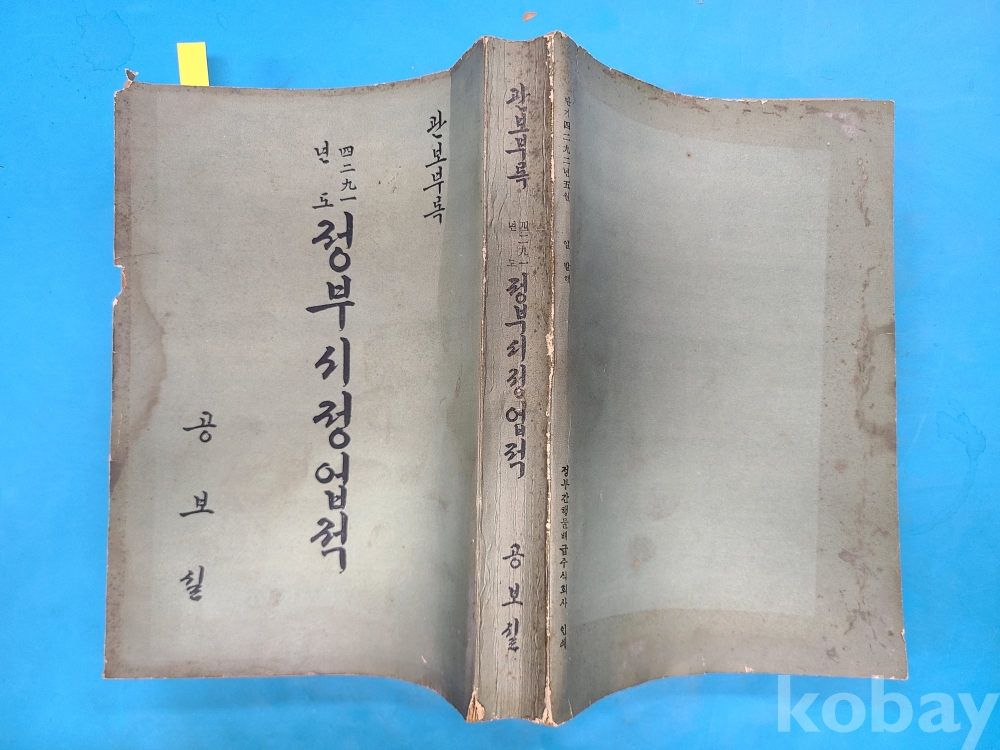 관보부록
四二九一
년도
정부시정업적
공보실
관보부록
四二九一
년도
정부시정업적
공보실
단기四二九二년五월 일 발행
정부간행물배급주식회사 인쇄
kobay